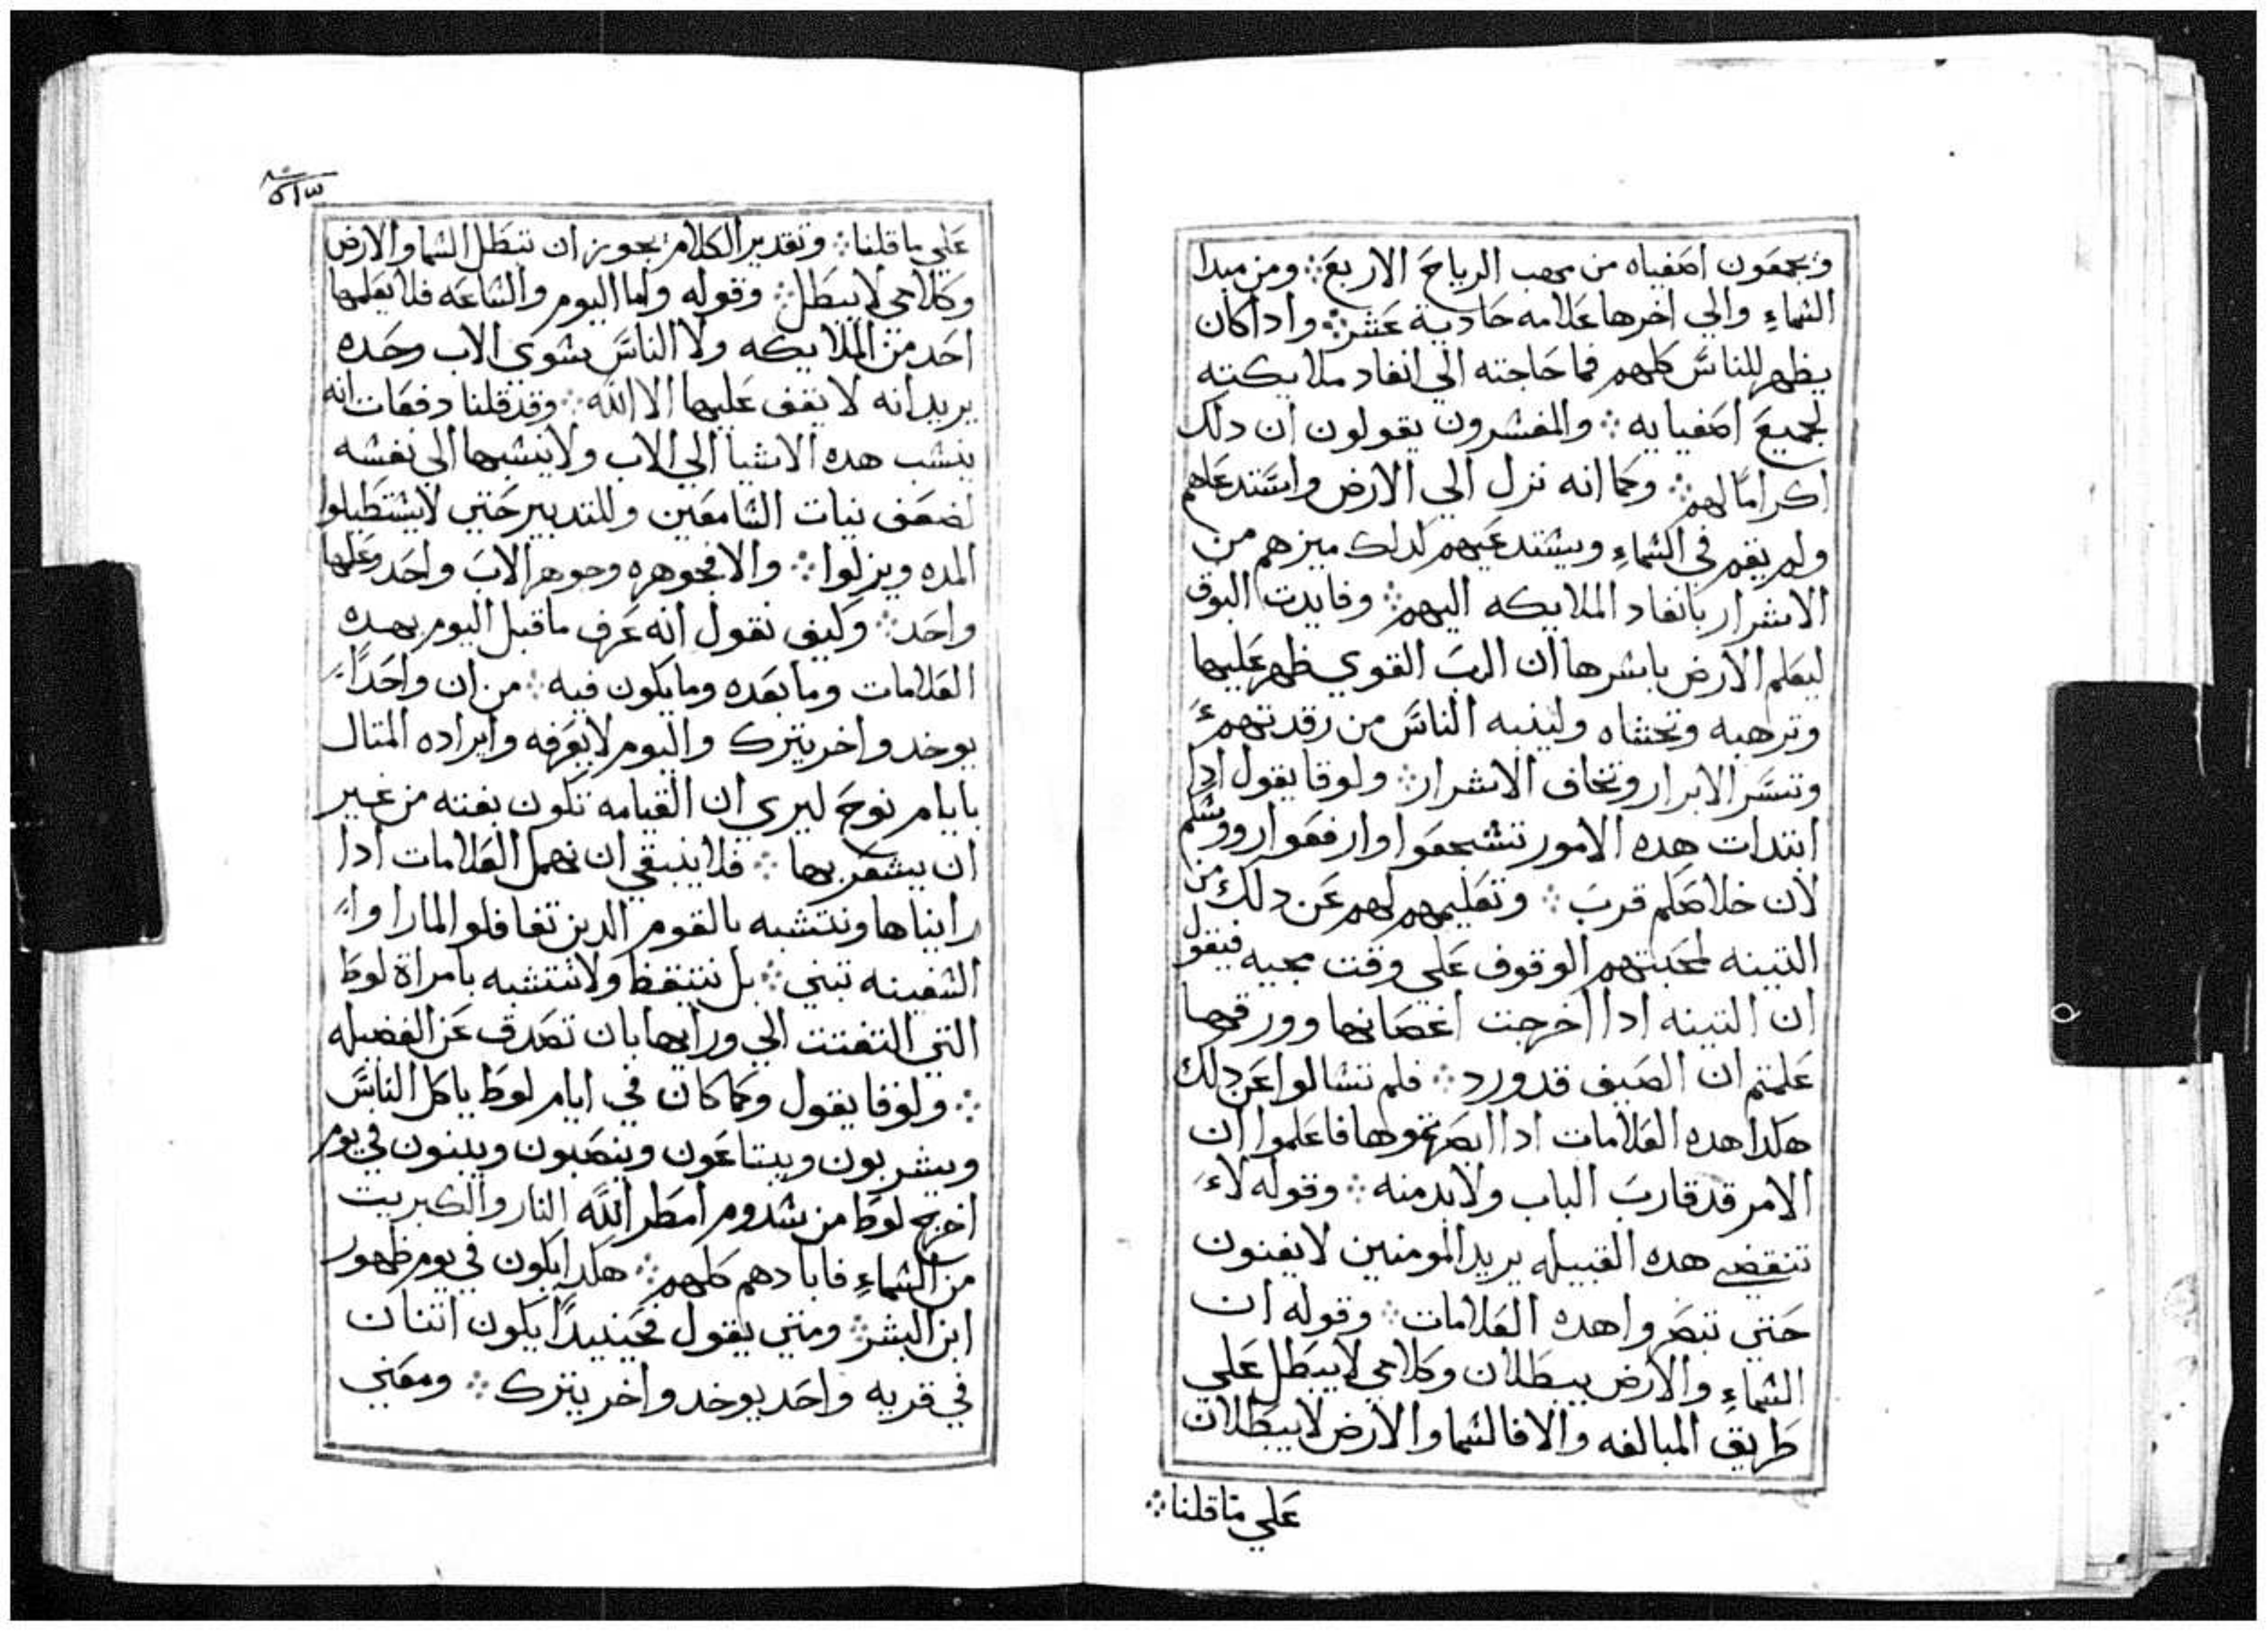 ويجمعون اصفياه من مهب الرياح الاربع ܀ ومن مبدا
السماءِ والي اخرها علامه حادية عشر ܀ وادا كان
يظهر للناس كلهم فما حاجته الي انفاد ملايكته
لجميع اصفيايه ܀ والمفسرون يقولون ان دلك
اكراماً لهم ܀ وكما انه نزل الي الارض واستدعاهم
ولم يقم في السماءِ ويستدعيهم لدلك ميزهم من
الاشرار بانفاد الملايكه اليهم ܀ وفايدت البوق
ليعلم الارض باسرها ان الرب القوي ظهر عليها
وترهبه وتخشاه ولينبه الناس من رقدتهم
وتسر الابرار وتخاف الاشرار ܀ ولوقا يقول ادا
ابتدات هده الامور تشجعوا وارفعوا رووسكم
لان خلاصكم قرب ܀ وتعليمهم لهم عن دلك من
التينه لمحبتهم الوقوف علي وقت مجيه فيقول
ان التينه ادا اخرجت اغصانها وورقها
علمتم ان الصيف قد ورد ܀ فلم تسالوا عن دلك
هكدا هده العلامات ادا ابصرتموها فاعلموا ان
الامر قد قارب الباب ولابد منه ܀ وقوله لا
تنقضي هده القبيله يريد المومنين لا يفنون
حتي تبصروا هده العلامات ܀ وقوله ان
السماءِ والارض يبطلان وكلامي لا يبطل علي
طريق المبالغه والا فالسما والارض لا يبطلان
علي ما قلنا ܀
٥١٣
علي ما قلنا ܀ وتقدير الكلام يجوز ان تبطل السما والارض
وكلامي لا يبطل ܀ وقوله واما اليوم والساعه فلا يعلمها
احد من الملايكه ولا الناس سوي الاب وحده
يريد انه لا يقف عليها الا الله ܀ وقد قلنا دفعات انه
ينسب هده الاشيا الي الاب ولا ينسبها الي نفسه
لضعف نيات السامعين وللتدبير حتي لا يستطيلوا
المده ويزلوا ܀ والا فجوهره وجوهر الاب واحد وعلمها
واحد ܀ وكيف نقول انه عرف ما قبل اليوم بهده
العلامات وما بعده وما يكون فيه ܀ من ان واحداً
يوخد واخر يترك واليوم لا يعرفه وايراده المتال
بايام نوح ليري ان القيامه تكون بغته من غير
ان يشعر بها ܀ فلا ينبغي ان نهمل العلامات ادا
رايناها ونتشبه بالقوم الدين تغافلوا لما راوا
السفينه تبني ܀ بل نتيقظ ولا نتشبه بامراة لوط
التي التفتت الي ورايها بان تصدف عن الفضيله
܀ ولوقا يقول وكما كان في ايام لوط ياكل الناس
ويشربون ويبتاعون وينصبون ويبنون في يوم
اخرج لوط من سدوم امطر الله النار والكبريت
من السماءِ فابادهم كلهم ܀ هكدا يكون في يوم ظهور
ابن البشر ܀ ومتي يقول فحينيداً يكون اتنان
في قريه واحد يوخد واخر يترك ܀ ومعني